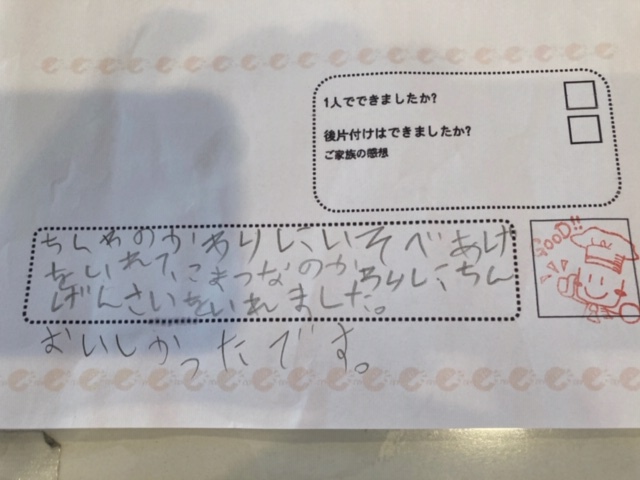 1人でできましたか?
後片付けはできましたか?
ご家族の感想
ちくわのかわりにいそべあげ
をいれて、こまつなのかわりにちん
げんさいをいれました。
おいしかったです。
GOOD!!